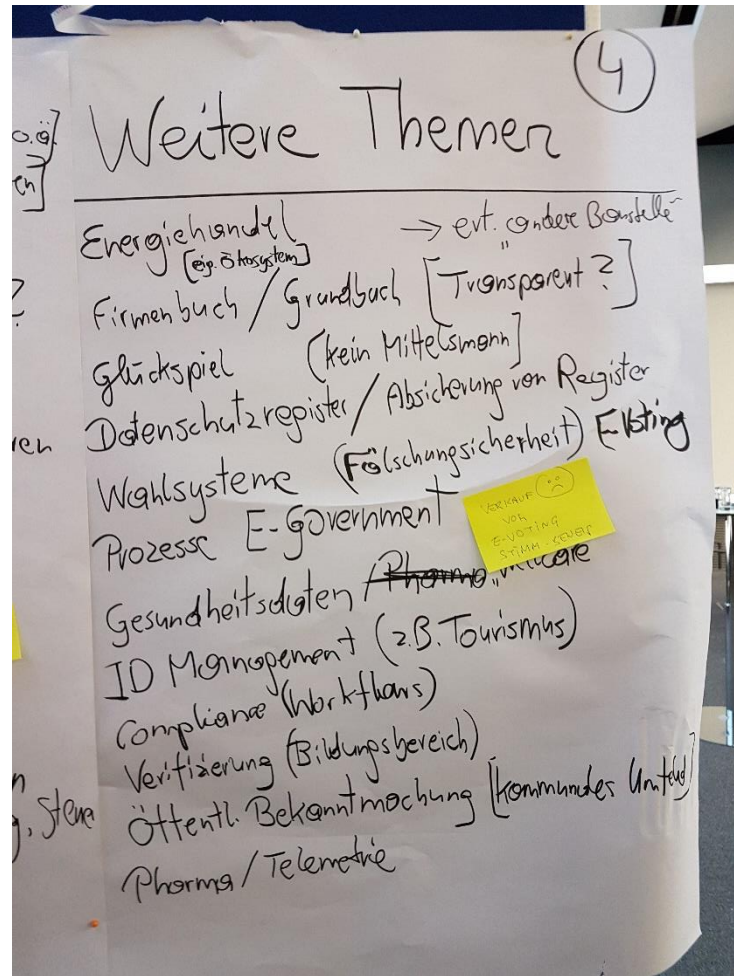 4
Weitere Themen
Energiehandel → evt. "andere Baustelle"
[eig. Ökosystem]
Firmenbuch / Grundbuch [Transparent?]
Glückspiel [kein Mittelsmann]
Datenschutzregister / Absicherung von Register
Wahlsysteme (Fälschungsicherheit) E-Voting
Prozesse E-Government
VERKAUF
VON
E-VOTING
STIMM-
Gesundheitsdaten / Pharma
ID Management (z.B. Tourismus)
Compliance (Workflows)
Verifizierung (Bildungsbereich)
Öffentl. Bekanntmachung [kommunales Umfeld]
Pharma / Telemetrie
o.ä]
en]
?
ren
n
g, Steue